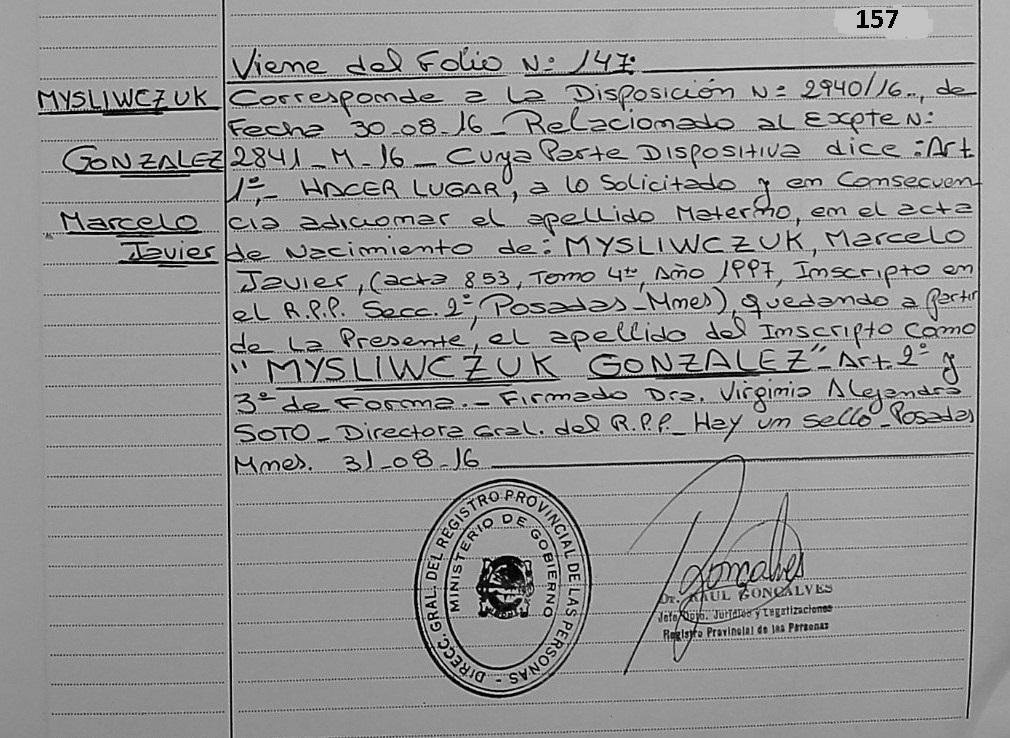 157
Viene del Folio Nº 147.
MYSLIWCZUK
Corresponde a la Disposición Nº 2940/16.., de
Fecha 30-08-16_Relacionado al Expte Nº:
GONZALEZ
2841_M_16_Cuya Parte Dispositiva dice: Art
1º,- HACER LUGAR, a lo Solicitado y en Consecuen
Marcelo
cia adicionar el apellido Materno, en el acta
Javier
de Nacimiento de: MYSLIWCZUK, Marcelo
Javier, (acta 853, Tomo 4to, Año 1997, Inscripto en
el R.P.P. Secc. 2º, Posadas_Mnes), quedando a partir
de La Presente, el apellido del Inscripto como
"MYSLIWCZUK GONZALEZ"-Art. 2º y
3º de Forma.- Firmado Dra. Virginia Alejandra
SOTO_Directora Gral. del R.P.P._Hay un sello_Posadas
Mnes. 31-08-16
DIRECC. GRAL. DEL REGISTRO PROVINCIAL DE LAS PERSONAS -
MINISTERIO DE GOBIERNO
Goncalves
Dr. RAUL GONÇALVES
Jefe Dpto. Jurídico y Legalizaciones
Registro Provincial de las Personas